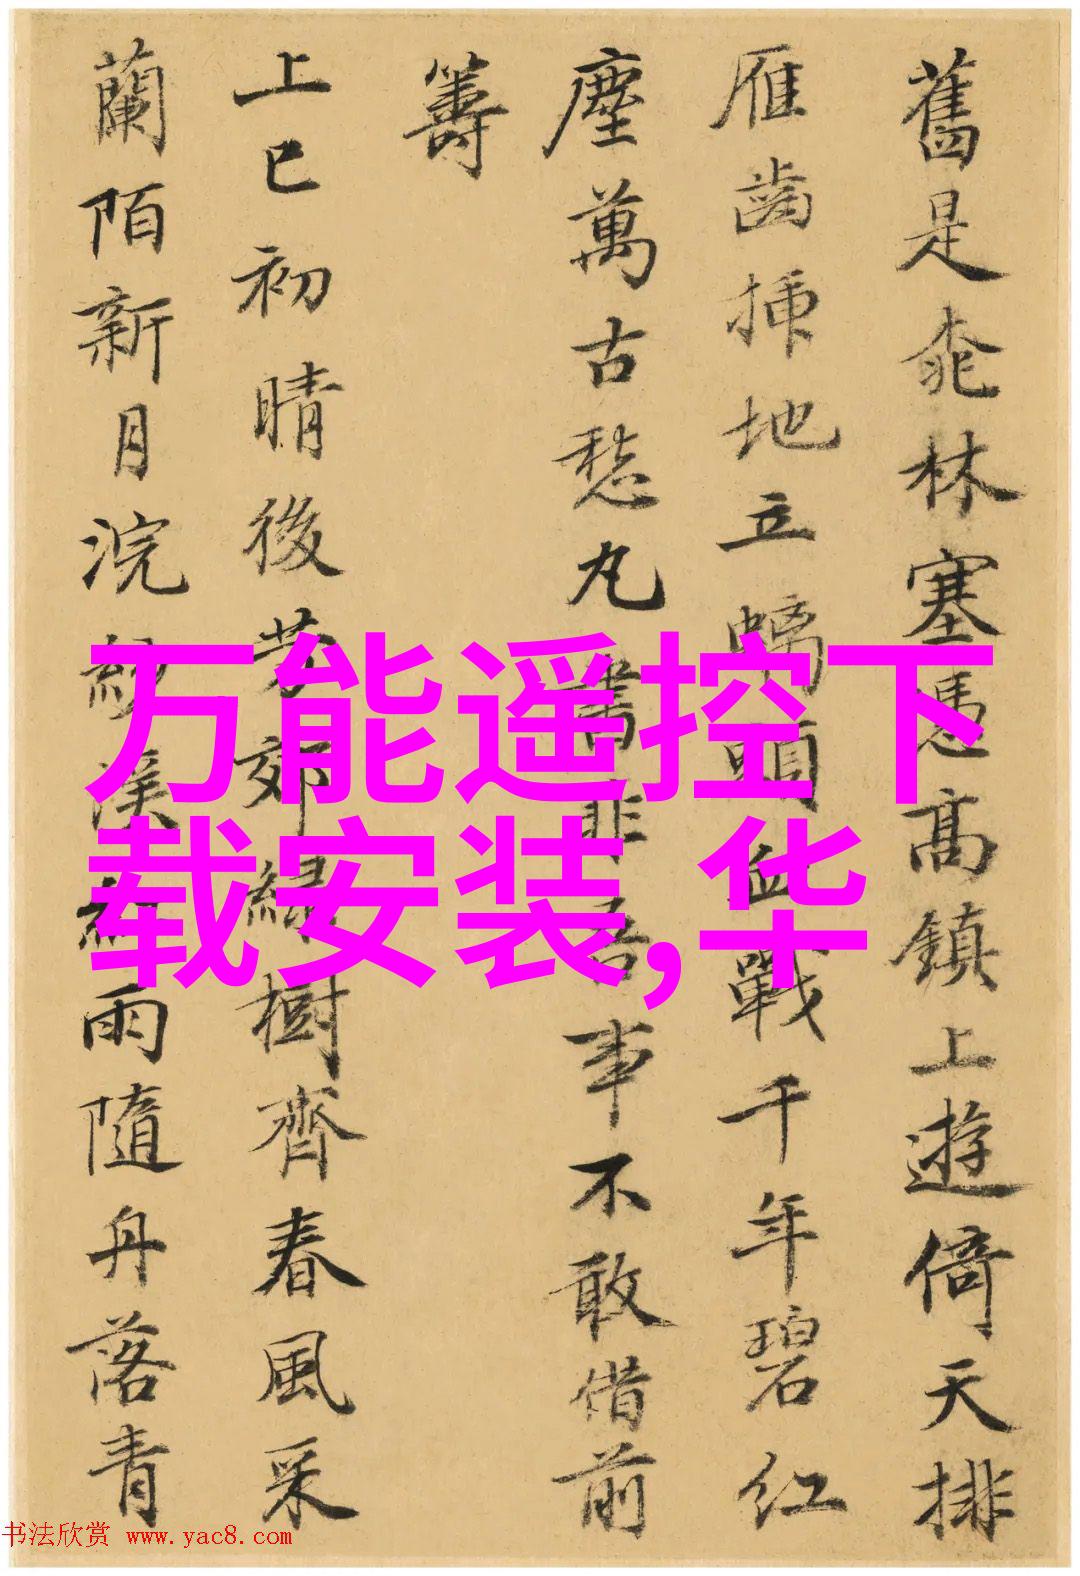 舊是桃林塞憑高鎮上遊倚天排
雁齒插地立螭頭血戰千年碧紅
塵萬古愁丸書非吾事不敢借前
籌
上巳初晴後芳郊綠樹齊春風采
蘭陌新月浣紗溪紅雨隨舟落青
万能遥控下
载安装,华
书法欣赏 www.yac8.com